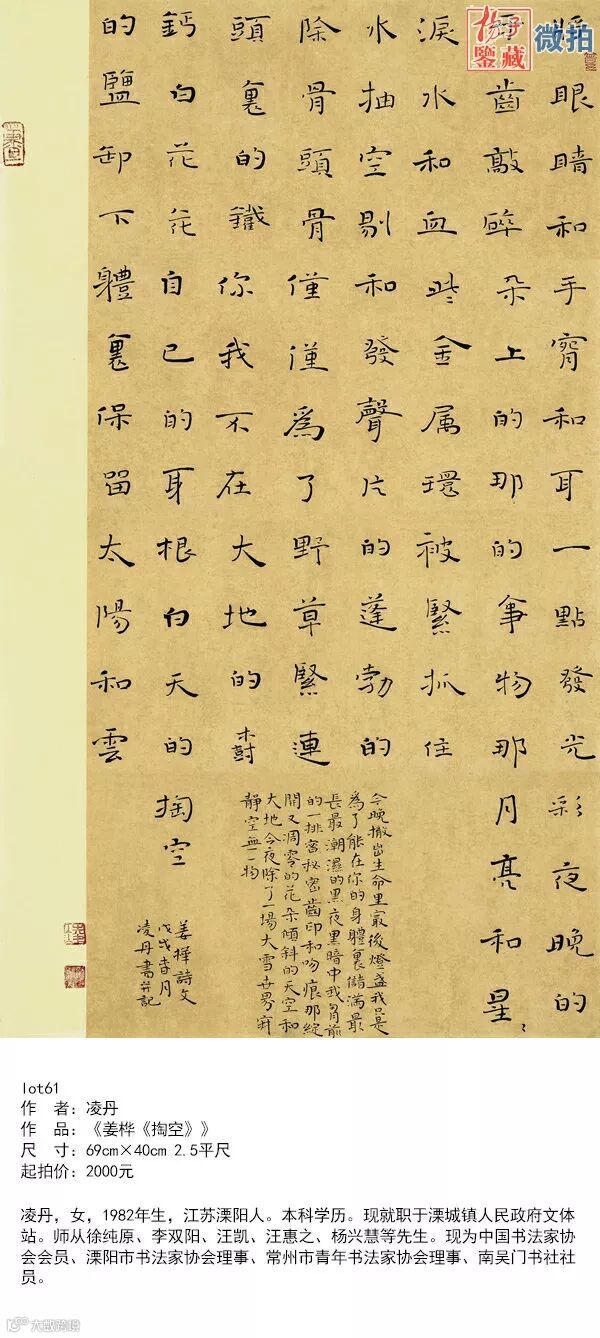 楊子
鑒藏 微拍
將眼暗和手和耳一點發光彩夜晚的
牙齒敲碎朵上的那的事物那月亮和星
淚水和血些金属環被緊抓住
水抽空剔和發聲片的蓬勃的
除骨頭骨僅僅爲了野草緊連
頭裏的鐵你我不在大地的
鈣白花花自己的耳根白天的
的鹽卸下體裏保留太陽和雲
今晚撤出生命里最後燈盞我只是
爲了能在你的身體裏儲滿最
長最潮濕的黑夜黑暗中我胸前
的一排密秘密齒印和吻痕那綻
開又凋零的花朵傾斜的天空和
大地今夜除了一場大雪世界寂
靜空無一物
掏空
姜樺詩文
戊戌春月
凌丹書并記
lot61
作　者：凌丹
作　品：《姜桦《掏空》》
尺　寸：69cm×40cm 2.5平尺
起拍价：2000元
凌丹，女，1982年生，江苏溧阳人。本科学历。现就职于溧城镇人民政府文体
站。师从徐纯原、李双阳、汪凯、汪惠之、杨兴慧等先生。现为中国书法家协
会会员、溧阳市书法家协会理事、常州市青年书法家协会理事、南吴门书社社
员。
大数跨境